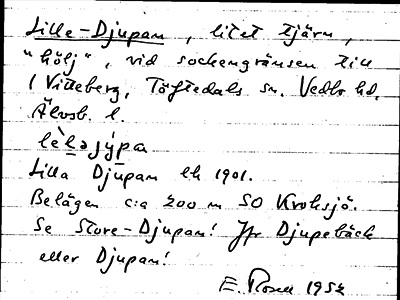 Lille-Djupan, litet tjärn,
"hölj", vid sockengränsen till
( Vitteberg, Töftedals sn. Vedbo hd.
Älvsb. l.
Lilla Djupan lk 1901.
Belägen c:a 200 m SO Kroksjö.
Se Store-Djupan! Jfr Djupebäck
eller Djupan!
E. Rosell 1952